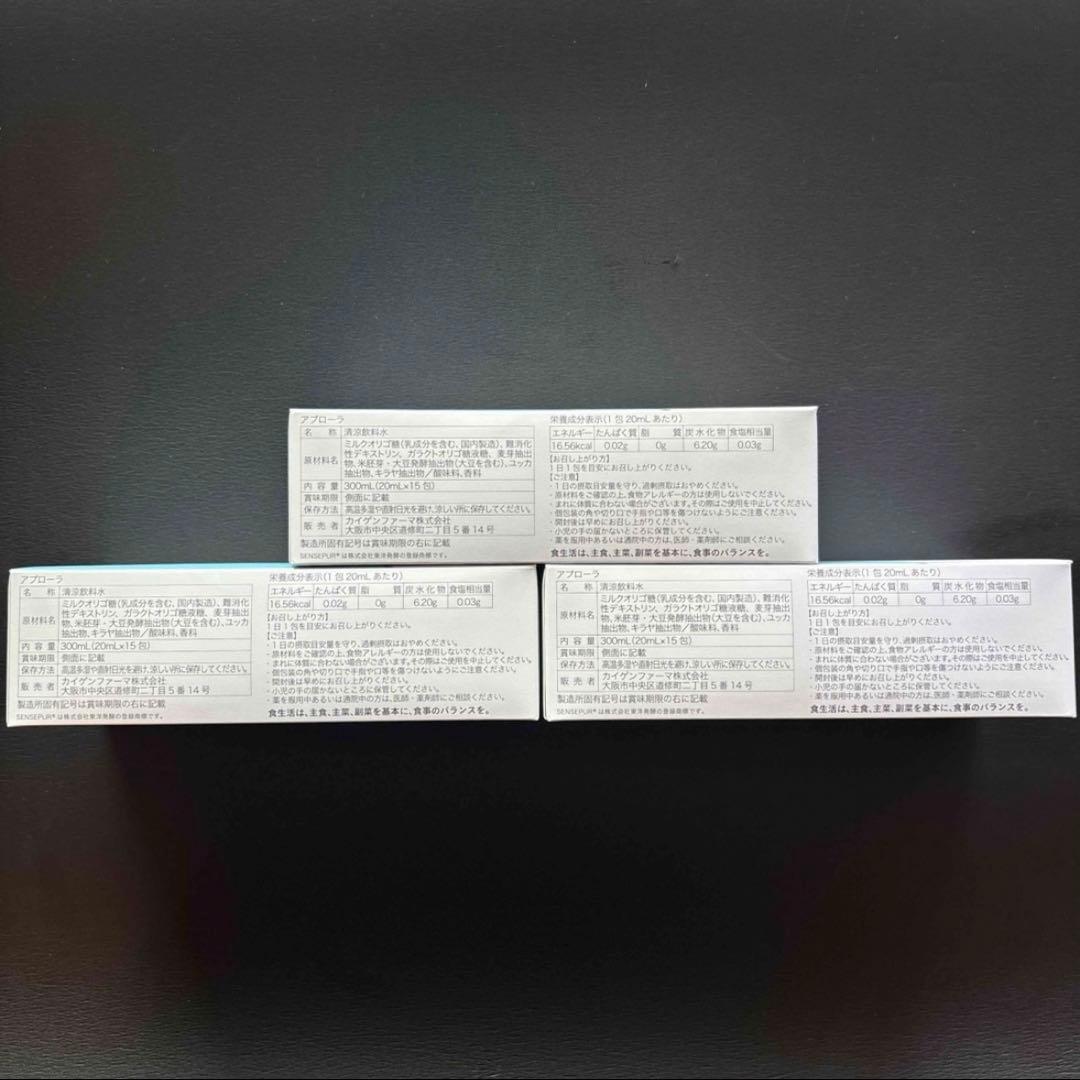 アプローラ
名 称 清涼飲料水
原材料名 ミルクオリゴ糖(乳成分を含む、国内製造)、難消化
性デキストリン、ガラクトオリゴ糖液糖、麦芽抽出
物、米胚芽・大豆発酵抽出物(大豆を含む)、ユッカ
抽出物、キラヤ抽出物/酸味料、香料
内 容 量 300mL(20mL×15包)
賞味期限 側面に記載
保存方法 高温多湿や直射日光を避け、涼しい所に保存してください。
販 売 者 カイゲンファーマ株式会社
大阪市中央区道修町二丁目5番14号
製造所固有記号は賞味期限の右に記載
SENSEPUR®は株式会社東洋発酵の登録商標です。
栄養成分表示(1包20mLあたり)
エネルギー たんぱく質 脂 質 炭水化物 食塩相当量
16.56kcal 0.02g 0g 6.20g 0.03g
【お召し上がり方】
1日1包を目安にお召し上がりください。
【ご注意】
・1日の摂取目安量を守り、過剰摂取はおやめください。
・原材料をご確認の上、食物アレルギーの方は使用しないでください。
・まれに体質に合わない場合がございます。その際はご使用を中止してください。
・個包装の角や切り口で手指や口等を傷つけないようにご注意ください。
・開封後は早めにお召し上がりください。
・小児の手の届かないところに保管してください。
・薬を服用中あるいは通院中の方は、医師・薬剤師にご相談ください。
食生活は、主食、主菜、副菜を基本に、食事のバランスを。
アプローラ
名 称 清涼飲料水
原材料名 ミルクオリゴ糖(乳成分を含む、国内製造)、難消化
性デキストリン、ガラクトオリゴ糖液糖、麦芽抽出
物、米胚芽・大豆発酵抽出物(大豆を含む)、ユッカ
抽出物、キラヤ抽出物/酸味料、香料
内 容 量 300mL(20mL×15包)
賞味期限 側面に記載
保存方法 高温多湿や直射日光を避け、涼しい所に保存してください。
販 売 者 カイゲンファーマ株式会社
大阪市中央区道修町二丁目5番14号
製造所固有記号は賞味期限の右に記載
SENSEPUR®は株式会社東洋発酵の登録商標です。
栄養成分表示(1包20mLあたり)
エネルギー たんぱく質 脂 質 炭水化物 食塩相当量
16.56kcal 0.02g 0g 6.20g 0.03g
【お召し上がり方】
1日1包を目安にお召し上がりください。
【ご注意】
・1日の摂取目安量を守り、過剰摂取はおやめください。
・原材料をご確認の上、食物アレルギーの方は使用しないでください。
・まれに体質に合わない場合がございます。その際はご使用を中止してください。
・個包装の角や切り口で手指や口等を傷つけないようにご注意ください。
・開封後は早めにお召し上がりください。
・小児の手の届かないところに保管してください。
・薬を服用中あるいは通院中の方は、医師・薬剤師にご相談ください。
食生活は、主食、主菜、副菜を基本に、食事のバランスを。
アプローラ
名 称 清涼飲料水
原材料名 ミルクオリゴ糖(乳成分を含む、国内製造)、難消化
性デキストリン、ガラクトオリゴ糖液糖、麦芽抽出
物、米胚芽・大豆発酵抽出物(大豆を含む)、ユッカ
抽出物、キラヤ抽出物/酸味料、香料
内 容 量 300mL(20mL×15包)
賞味期限 側面に記載
保存方法 高温多湿や直射日光を避け、涼しい所に保存してください。
販 売 者 カイゲンファーマ株式会社
大阪市中央区道修町二丁目5番14号
製造所固有記号は賞味期限の右に記載
SENSEPUR®は株式会社東洋発酵の登録商標です。
栄養成分表示(1包20mLあたり)
エネルギー たんぱく質 脂 質 炭水化物 食塩相当量
16.56kcal 0.02g 0g 6.20g 0.03g
【お召し上がり方】
1日1包を目安にお召し上がりください。
【ご注意】
・1日の摂取目安量を守り、過剰摂取はおやめください。
・原材料をご確認の上、食物アレルギーの方は使用しないでください。
・まれに体質に合わない場合がございます。その際はご使用を中止してください。
・個包装の角や切り口で手指や口等を傷つけないようにご注意ください。
・開封後は早めにお召し上がりください。
・小児の手の届かないところに保管してください。
・薬を服用中あるいは通院中の方は、医師・薬剤師にご相談ください。
食生活は、主食、主菜、副菜を基本に、食事のバランスを。